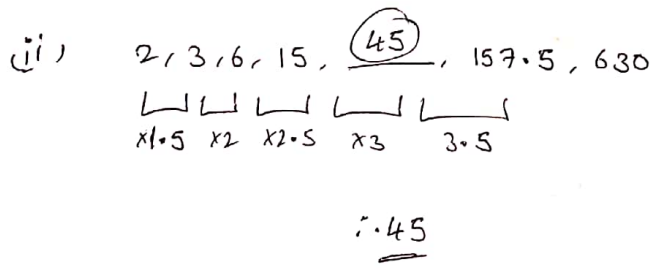 ii) 2, 3, 6, 15, 45, 157.5, 630
x1.5 x2 x2.5 x3 3.5
∴ 45